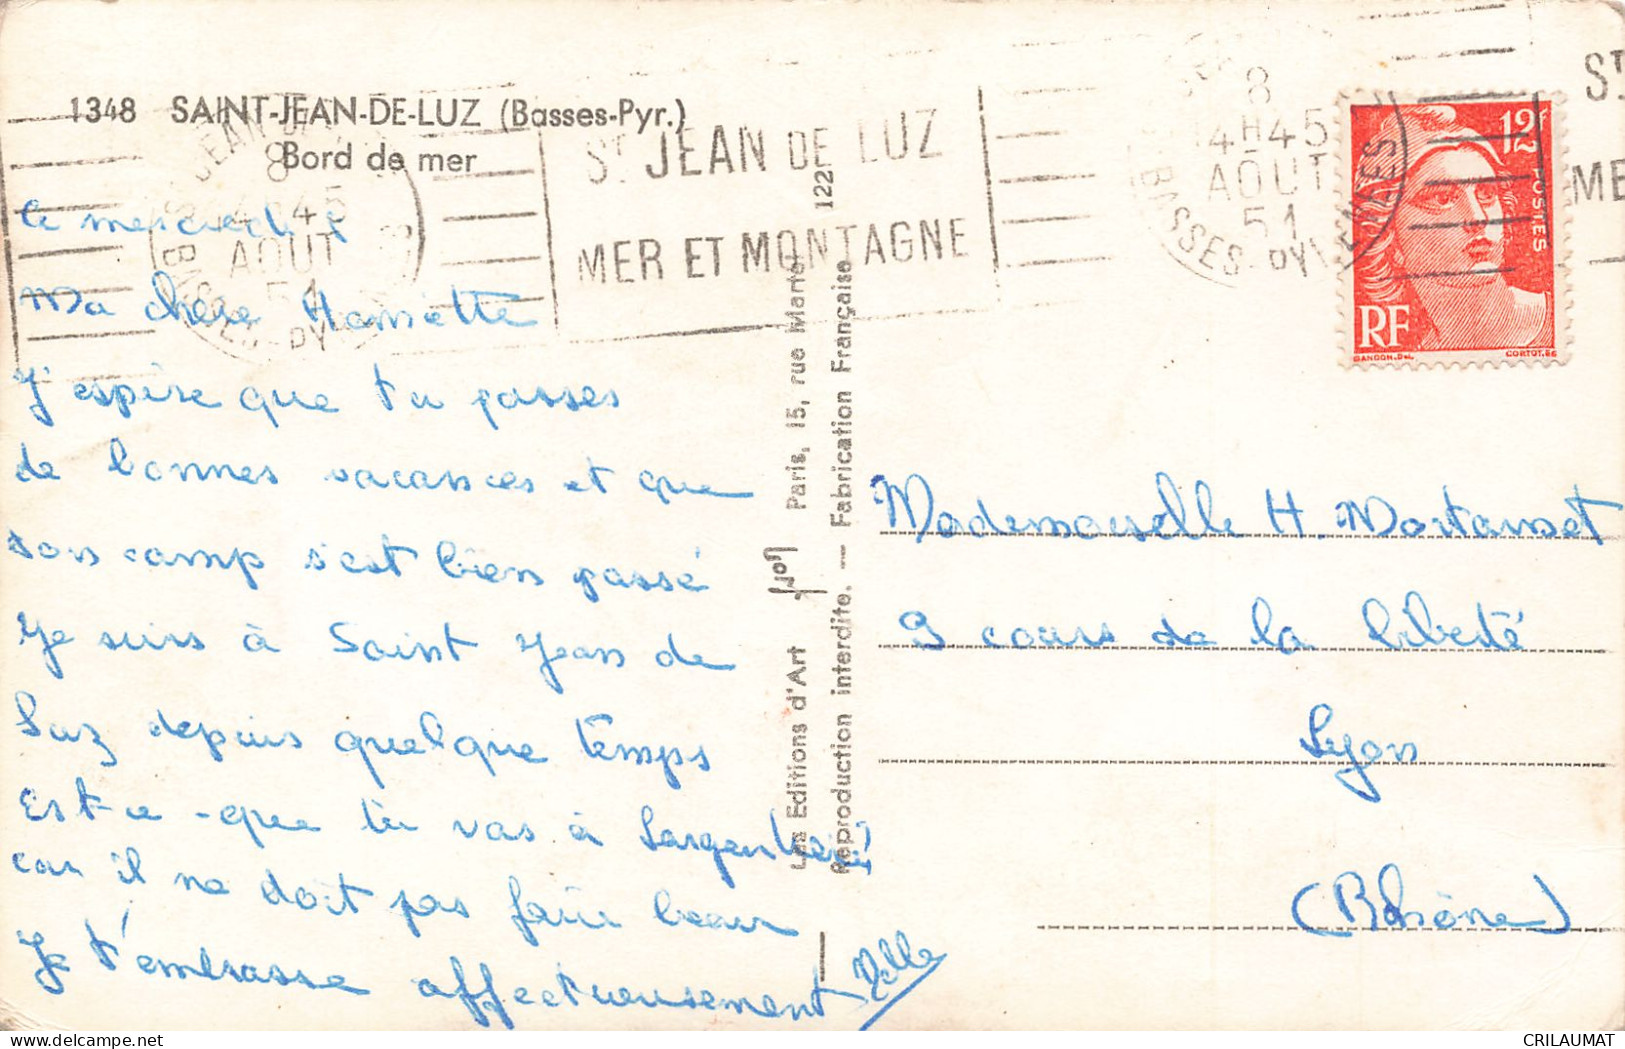 1348 SAINT-JEAN-DE-LUZ (Basses-Pyr.)
Bord de mer
ST JEAN DE LUZ
MER ET MONTAGNE
8
14H45
AOUT
51
BASSES-PYRENEES
ST
ME
12F
POSTES
RF
GANDON.DEL.
CORTOT.SC
le mercredi 8
Ma chère Henriette
J'espère que tu passes
de bonnes vacances et que
ton camp s'est bien passé
Je suis à Saint Jean de
Luz depuis quelque temps
Est-ce-que tu vas à
car il ne doit pas faire beau
Je t'embrasse affectueusement
Les Editions d'Art Yvon Paris, 15, rue Martel 122
Reproduction interdite. — Fabrication Française
Mademoiselle H.
9 cours de la liberté
Lyon
(Rhône)
CRILAUMAT